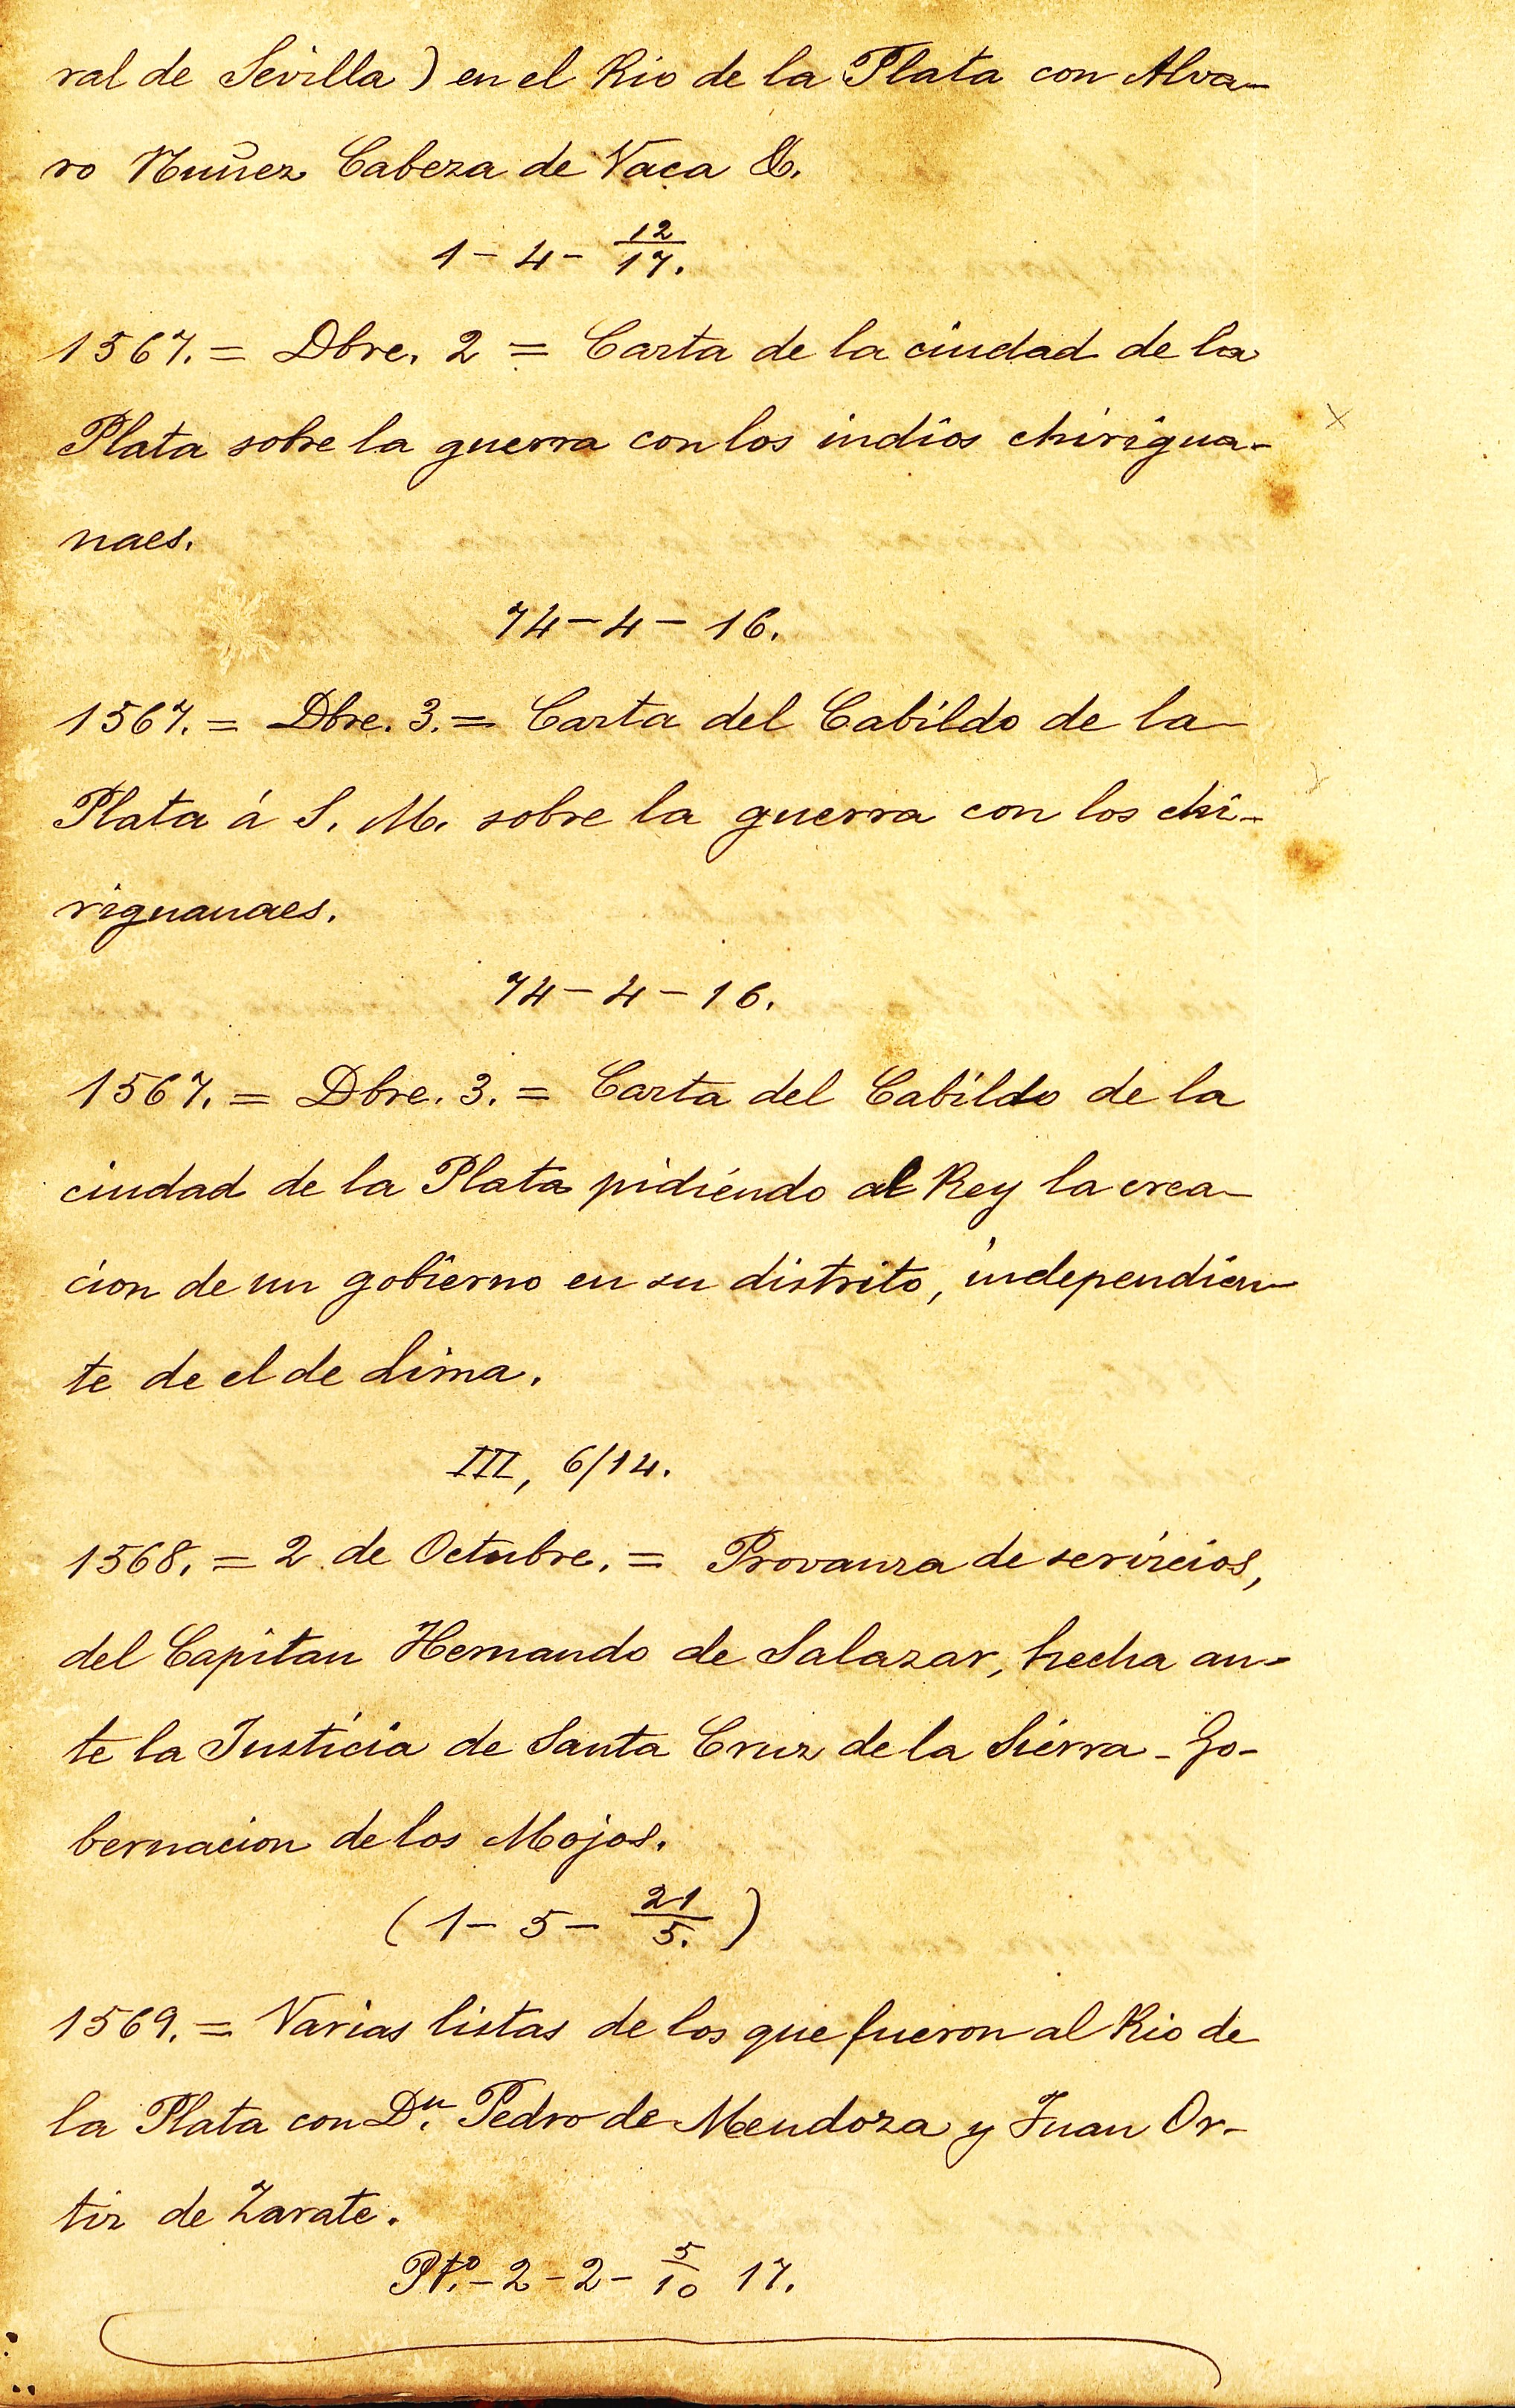 ral de Sevilla) en el Rio de la Plata con Alva-
ro Nuñez Cabeza de Vaca &.
1 - 4 - 12/17.
1567. = Dbre. 2 = Carta de la ciudad de la
Plata sobre la guerra con los indios chirigua-
naes.
74 - 4 - 16.
1567. = Dbre. 3. = Carta del Cabildo de la
Plata á S. M. sobre la guerra con los chi-
riguanaes.
74 - 4 - 16.
1567. = Dbre. 3. = Carta del Cabildo de la
ciudad de la Plata pidiendo al Rey la crea-
cion de un gobierno en su distrito, independien-
te de el de Lima.
III, 6/14.
1568. = 2 de Octubre. = Provanza de servicios,
del Capitan Hernando de Salazar, hecha an-
te la Justicia de Santa Cruz de la Sierra - Go-
bernacion de los Mojos.
(1 - 5 - 21/5.)
1569. = Varias listas de los que fueron al Rio de
la Plata con Dn. Pedro de Mendoza y Juan Or-
tiz de Zarate.
Pto. - 2 - 2 - 5/10 17.